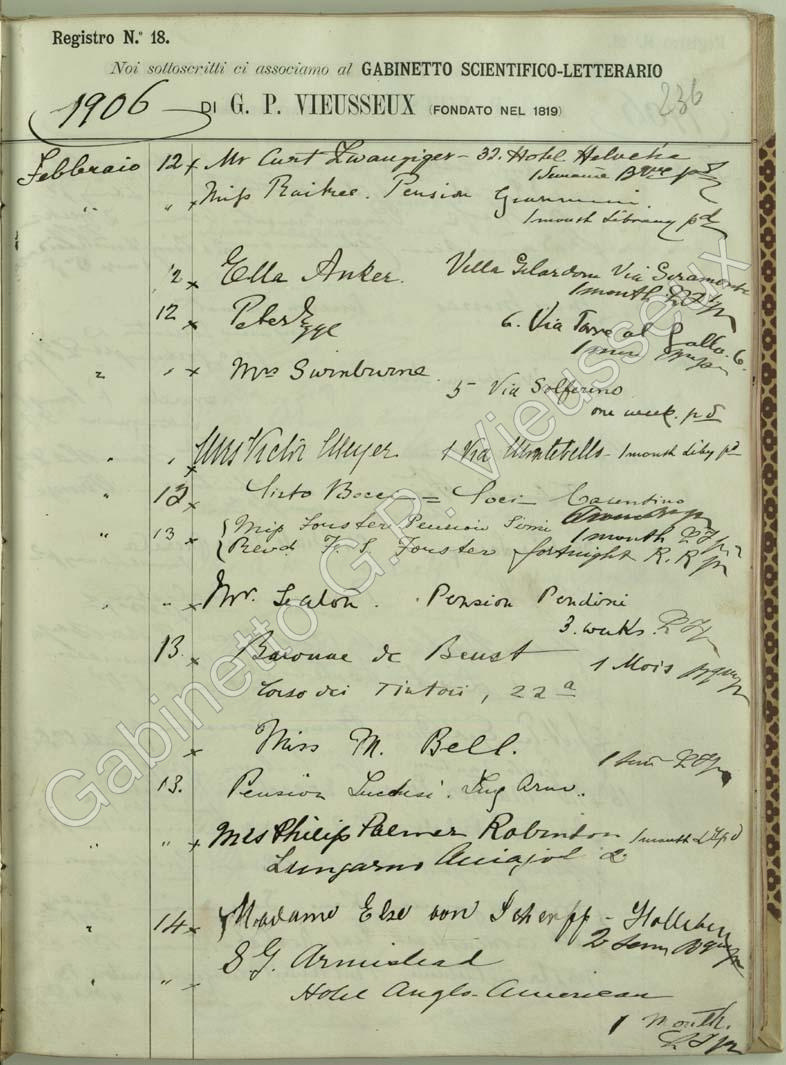 Registro N.º 18.
Noi sottoscritti ci associamo al GABINETTO SCIENTIFICO-LETTERARIO
1906 DI G. P. VIEUSSEUX (FONDATO NEL 1819) 236
Febbraio 12 x Mr Curt Zwanziger - 32. Hotel Helvetia
" " x Miss Raitree. Pension
1 month Library pd
12 x Ella Anker. Villa Gelardoni Via
1 month
12 x Peter Egge 6. Via Torre al Gallo. 6.
" " x Mrs Swinburne
5 Via Solferino
one week. pd
" x Mrs Victor Meyer 1 Via Montebello - 1 month Liby pd
" 12 x =
" 13 x { Miss Forster Pension Simi 1 month
{ Revd. F. S. Forster fortnight R. R
" " x Mr. Pension Pendini
3. weeks.
13 x Baronne de Beust 1 Mois
Corso dei Tintori, 22 a
x Miss M. Bell.
13. Pension Lucchesi. Lung Arno.
" x Mrs Philip Palmer Robinson 1 month
Lungarno Acciajoli 2
" 14 x { Madame Else von Scherff -
" S G. Armistead
Hotel Anglo-American
1 month.
Gabinetto G.P. Vieusseux